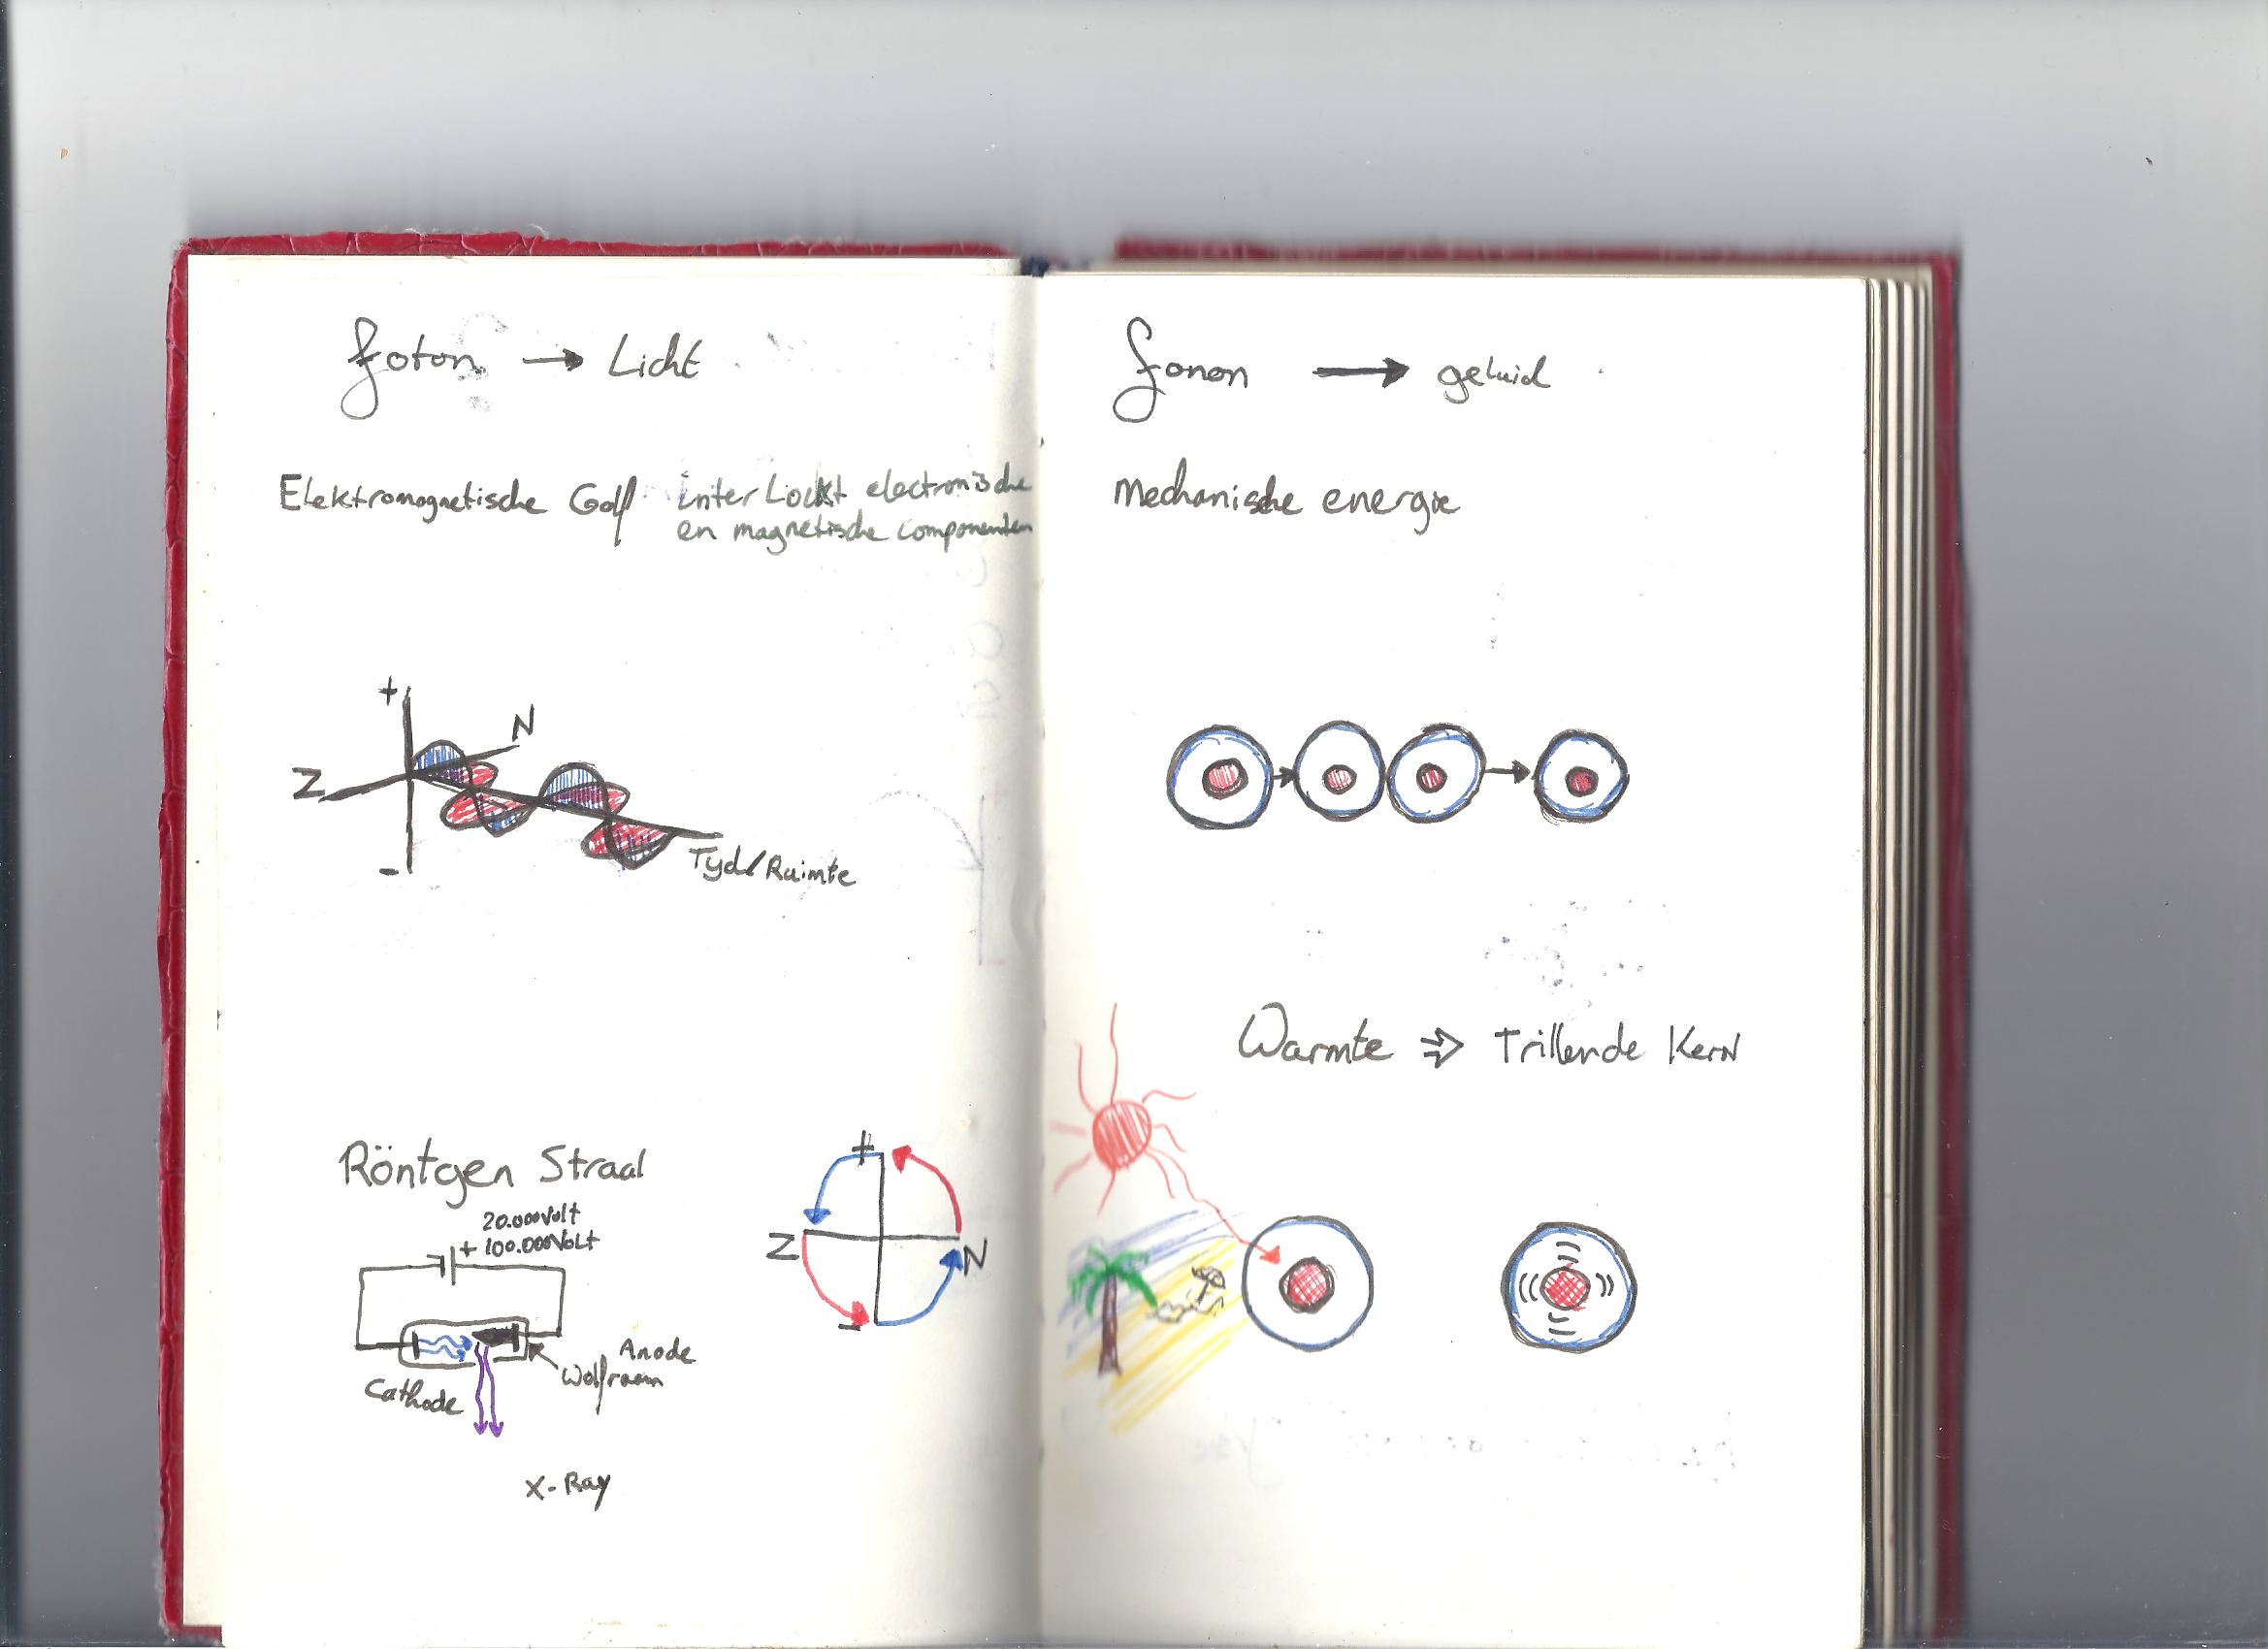 foton → Licht
Elektromagnetische Golf interLockt electronische
en magnetische componenten
+
N
Z
-
Tyd/Ruimte
Röntgen Straal
20.000Volt
+ 100.000Volt
Anode
Wolfraam
Cathode
X-Ray
+
Z
N
-
fonon → geluid
Mechanische energie
Warmte ⇒ Trillende Kern